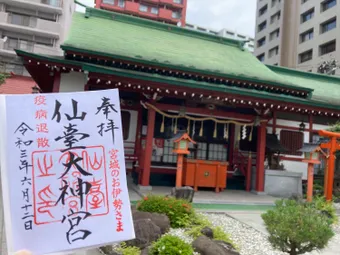 奉拝
宮城のお伊勢さま
仙臺大神宮
疫病退散
令和三年六月十二日